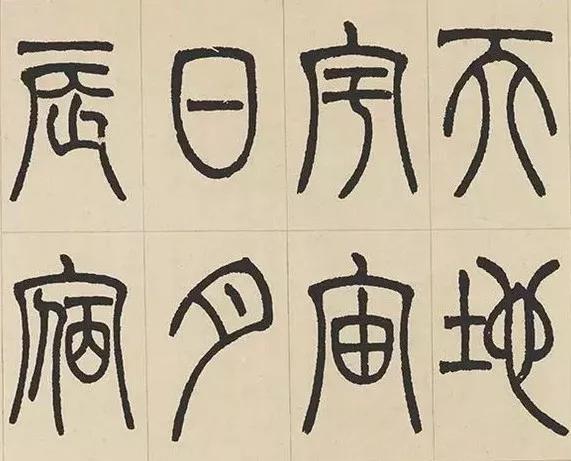 天地
宇宙
日月
辰宿